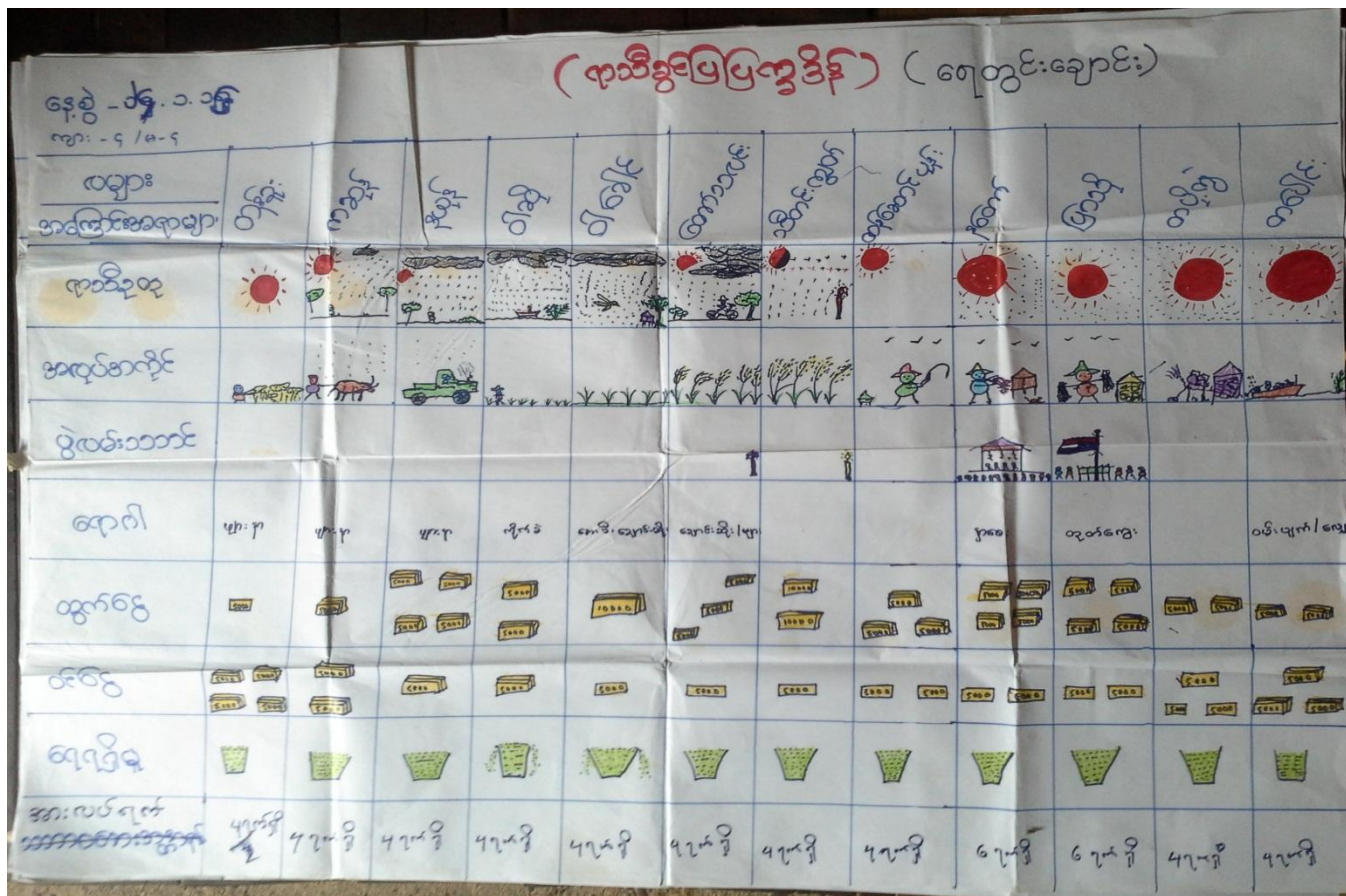 (ရာသီခွင်ပြပြက္ခဒိန်) (ရေတွင်းချောင်း)
နေ့စွဲ -
ကျား - ၄ / မ - ၄
လများ
အကြောင်းအရာများ
တန်ခူး ကဆုန် နယုန် ဝါဆို ဝါခေါင် တော်သလင်း သီတင်းကျွတ် တန်ဆောင်မုန်း နတ်တော် ပြာသို တပို့တွဲ တပေါင်း
ရာသီဥတု
အလုပ်အကိုင်
ပွဲလမ်းသဘင်
ရောဂါ ဖျားနာ ဖျားနာ ဖျားနာ ကိုက်ခဲ ချောင်းဆိုး ချောင်းဆိုး/ဖျား နှာစေး တုတ်ကွေး ဝမ်းပျက်/လျှော
ထွက်ငွေ 5000 5000 5000 5000 5000 5000 10000 5000 10000 5000 5000 5000 5000 5000 5000 5000 5000
5000 5000 5000 5000 5000 10000 5000 5000 5000 5000 5000 5000
ဝင်ငွေ 5000 5000 5000 5000 5000 5000 5000 5000 5000 5000 5000 5000 5000 5000 5000 5000
5000 5000 5000 5000 5000 5000 5000
ရေရရှိမှု
အားလပ်ရက် ၄ရက်ရှိ ၄ရက်ရှိ ၄ရက်ရှိ ၄ရက်ရှိ ၄ရက်ရှိ ၄ရက်ရှိ ၄ရက်ရှိ ၄ရက်ရှိ ၆ရက်ရှိ ၆ရက်ရှိ ၄ရက်ရှိ ၄ရက်ရှိ